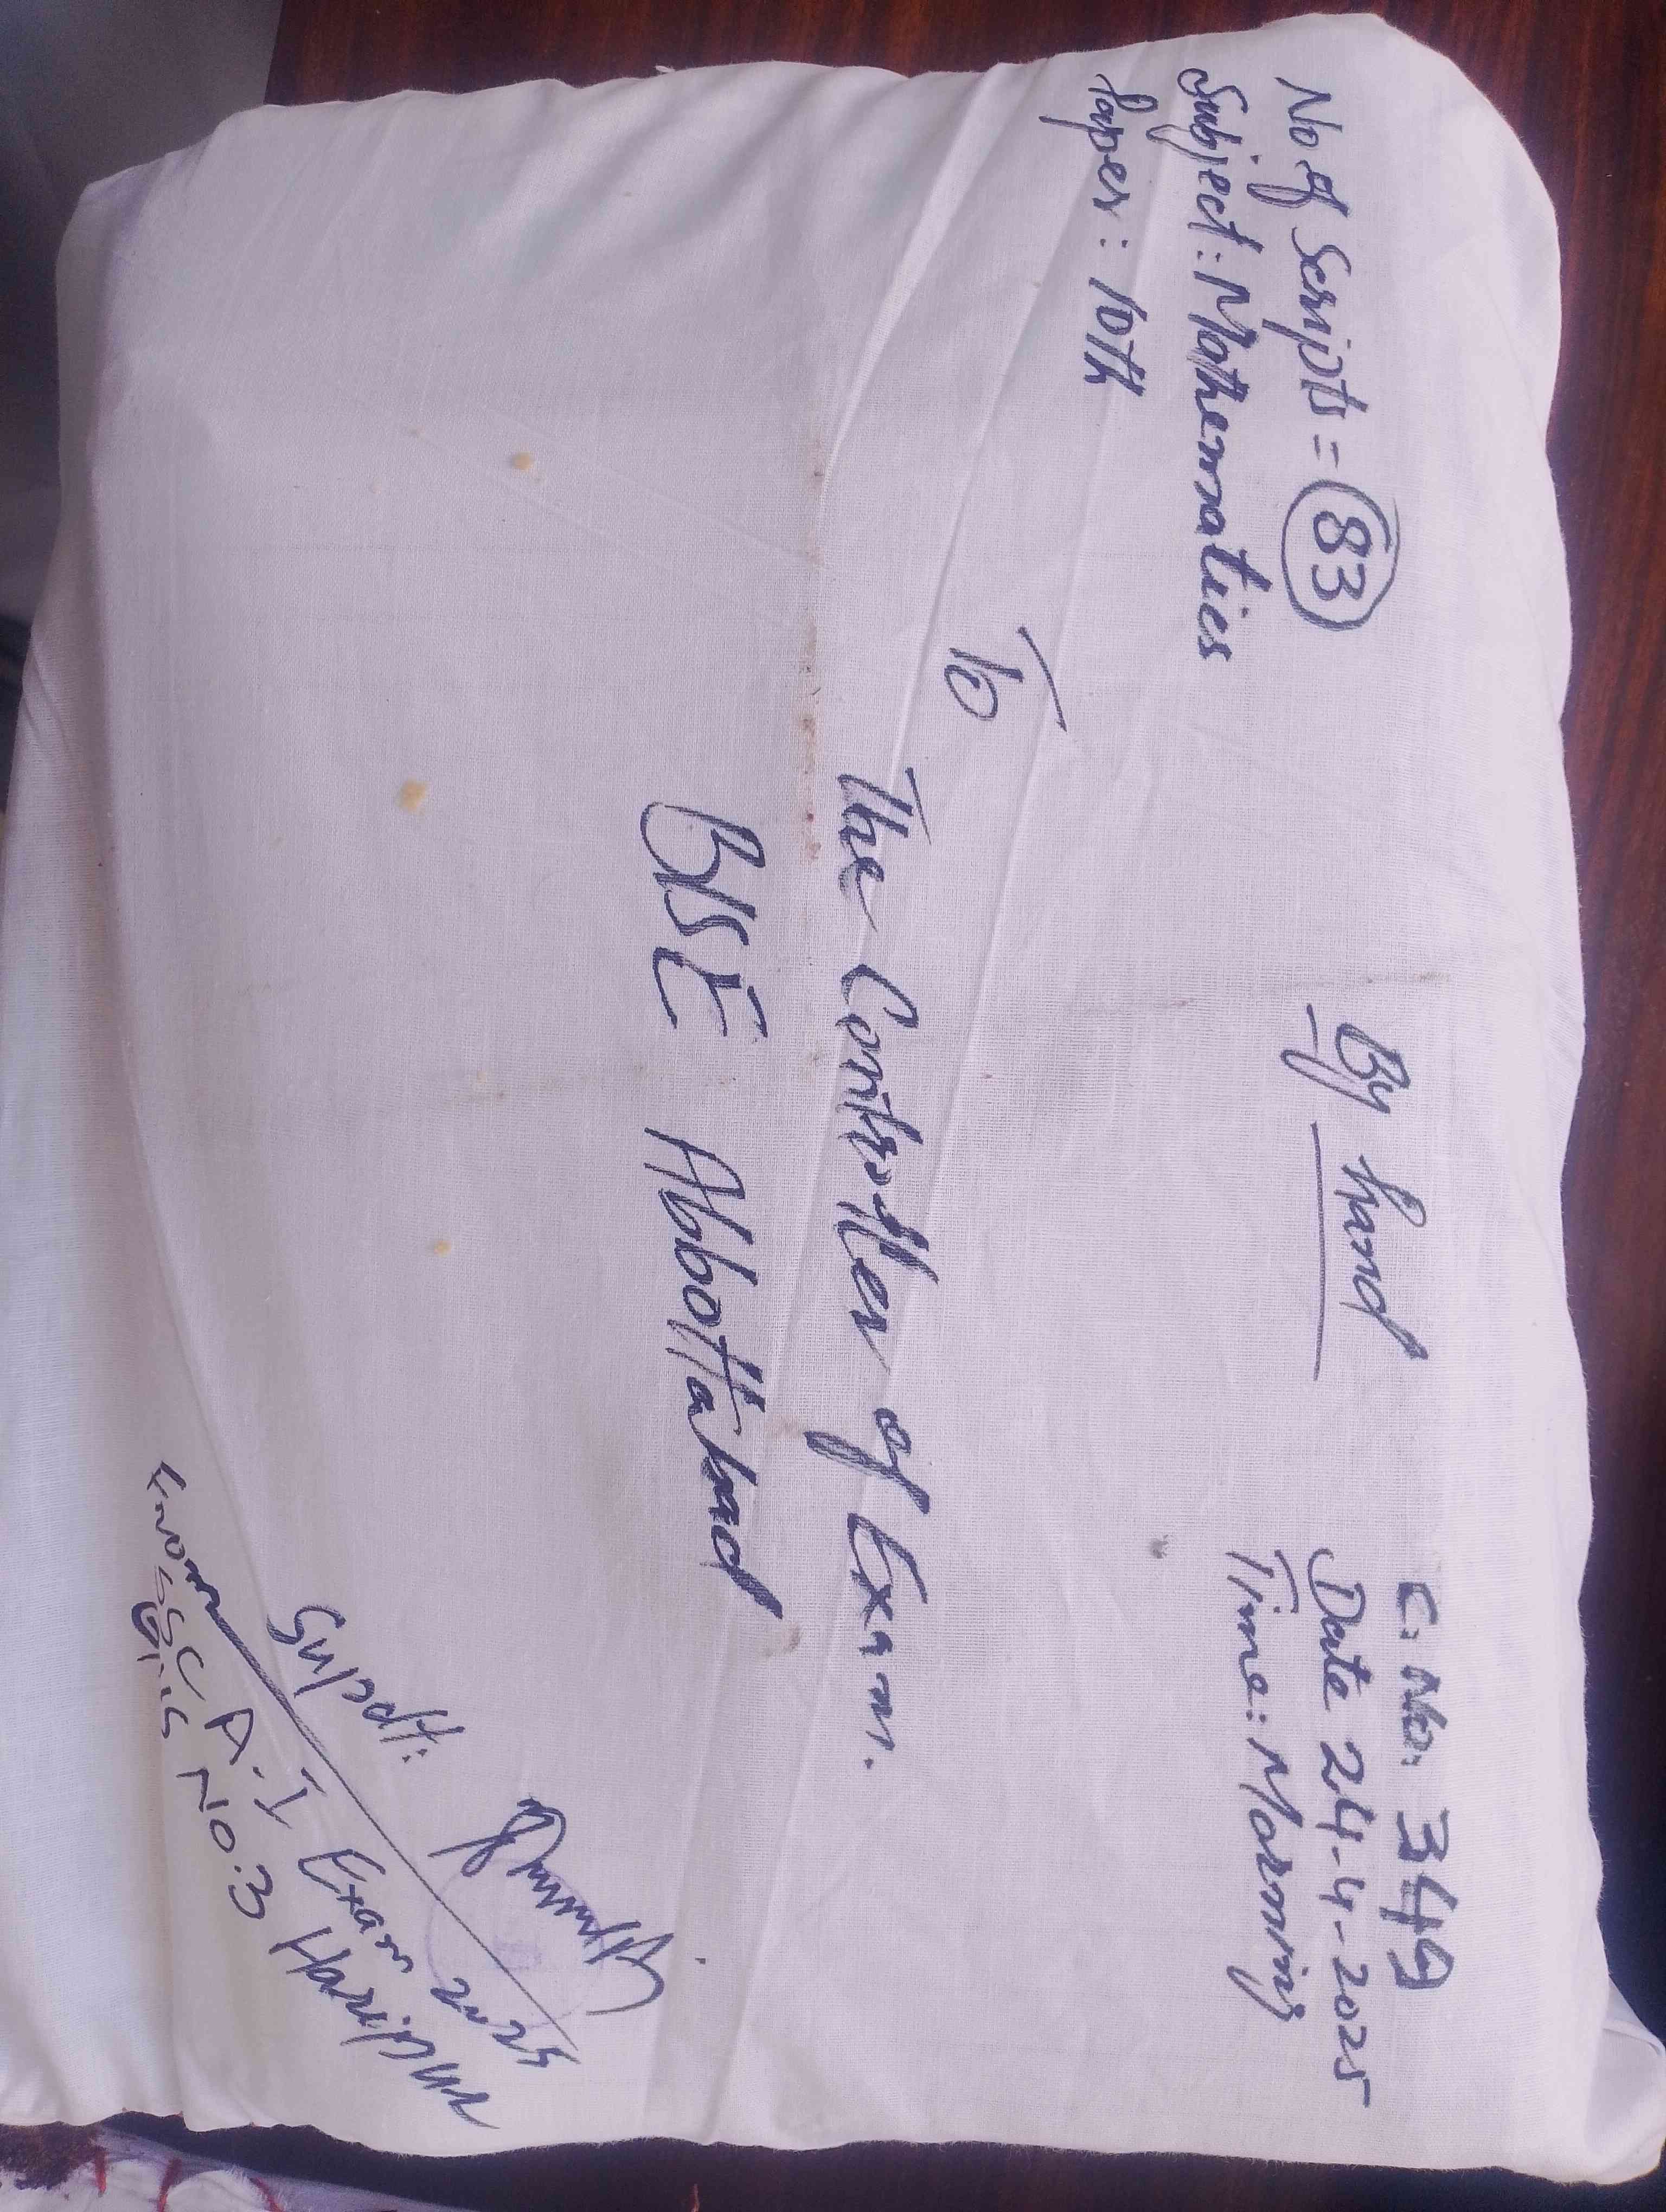 By hand
C. No. 349
No of Scripts = 83
Date 24-4-2025
Subject: Mathematics
Time: Morning
Paper: 10th
To
The Controller of Exam.
BISE Abbottabad
Supdt:
From SSC A-I Exam 2025
G.H.S No:3 Haripur